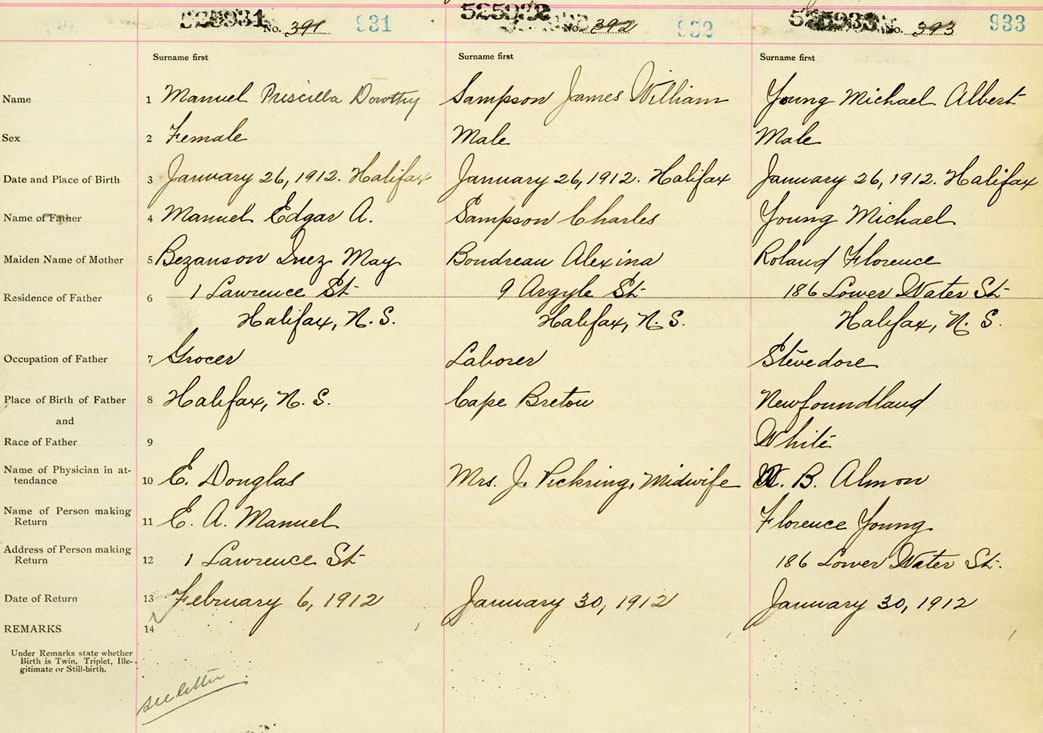 525931 525932 525933
No. 391 931 No. 392 932 No. 393 933
Surname first Surname first Surname first
Name 1 Manuel Priscilla Dorothy Sampson James William Young Michael Albert
Sex 2 Female Male Male
Date and Place of Birth 3 January 26, 1912. Halifax January 26, 1912. Halifax January 26, 1912. Halifax
Name of Father 4 Manuel Edgar A. Sampson Charles Young Michael
Maiden Name of Mother 5 Bezanson Inez May Boudreau Alexina Roland Florence
Residence of Father 6 1 Lawrence St. 9 Argyle St. 186 Lower Water St.
Halifax, N.S. Halifax, N.S. Halifax, N.S.
Occupation of Father 7 Grocer Laborer Stevedore
Place of Birth of Father 8 Halifax, N.S. Cape Breton Newfoundland
and
Race of Father 9 White
Name of Physician in at-
tendance 10 E. Douglas Mrs. J. Pickring, Midwife W. B. Almon
Name of Person making
Return 11 E. A. Manuel Florence Young
Address of Person making
Return 12 1 Lawrence St. 186 Lower Water St.
Date of Return 13 February 6, 1912 January 30, 1912 January 30, 1912
REMARKS 14
Under Remarks state whether
Birth is Twin, Triplet, Ille-
gitimate or Still-birth.
see letter